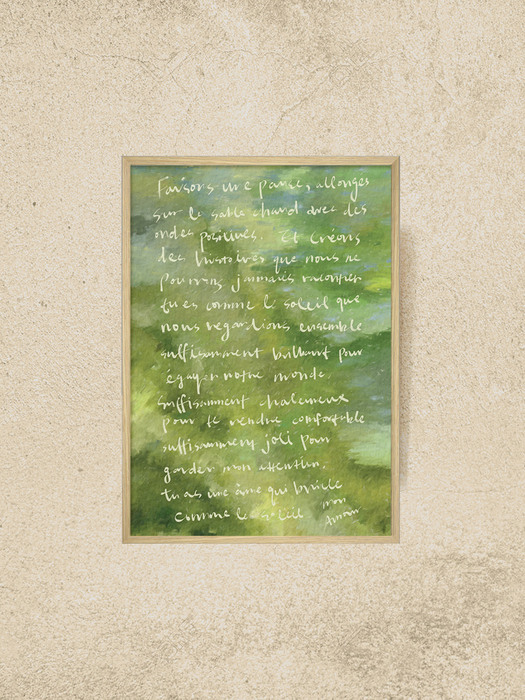 Faisons une pause, allongés
sur le sable chaud avec des
ondes positives. Et créons
des histoires que nous ne
pourrons jamais raconter
tu es comme le soleil que
nous regardions ensemble
suffisamment brillant pour
égayer notre monde
suffisamment chaleureux
pour te rendre comfortable
suffisamment joli pour
garder mon attention.
tu as une âme qui brille
comme le soleil mon
amour